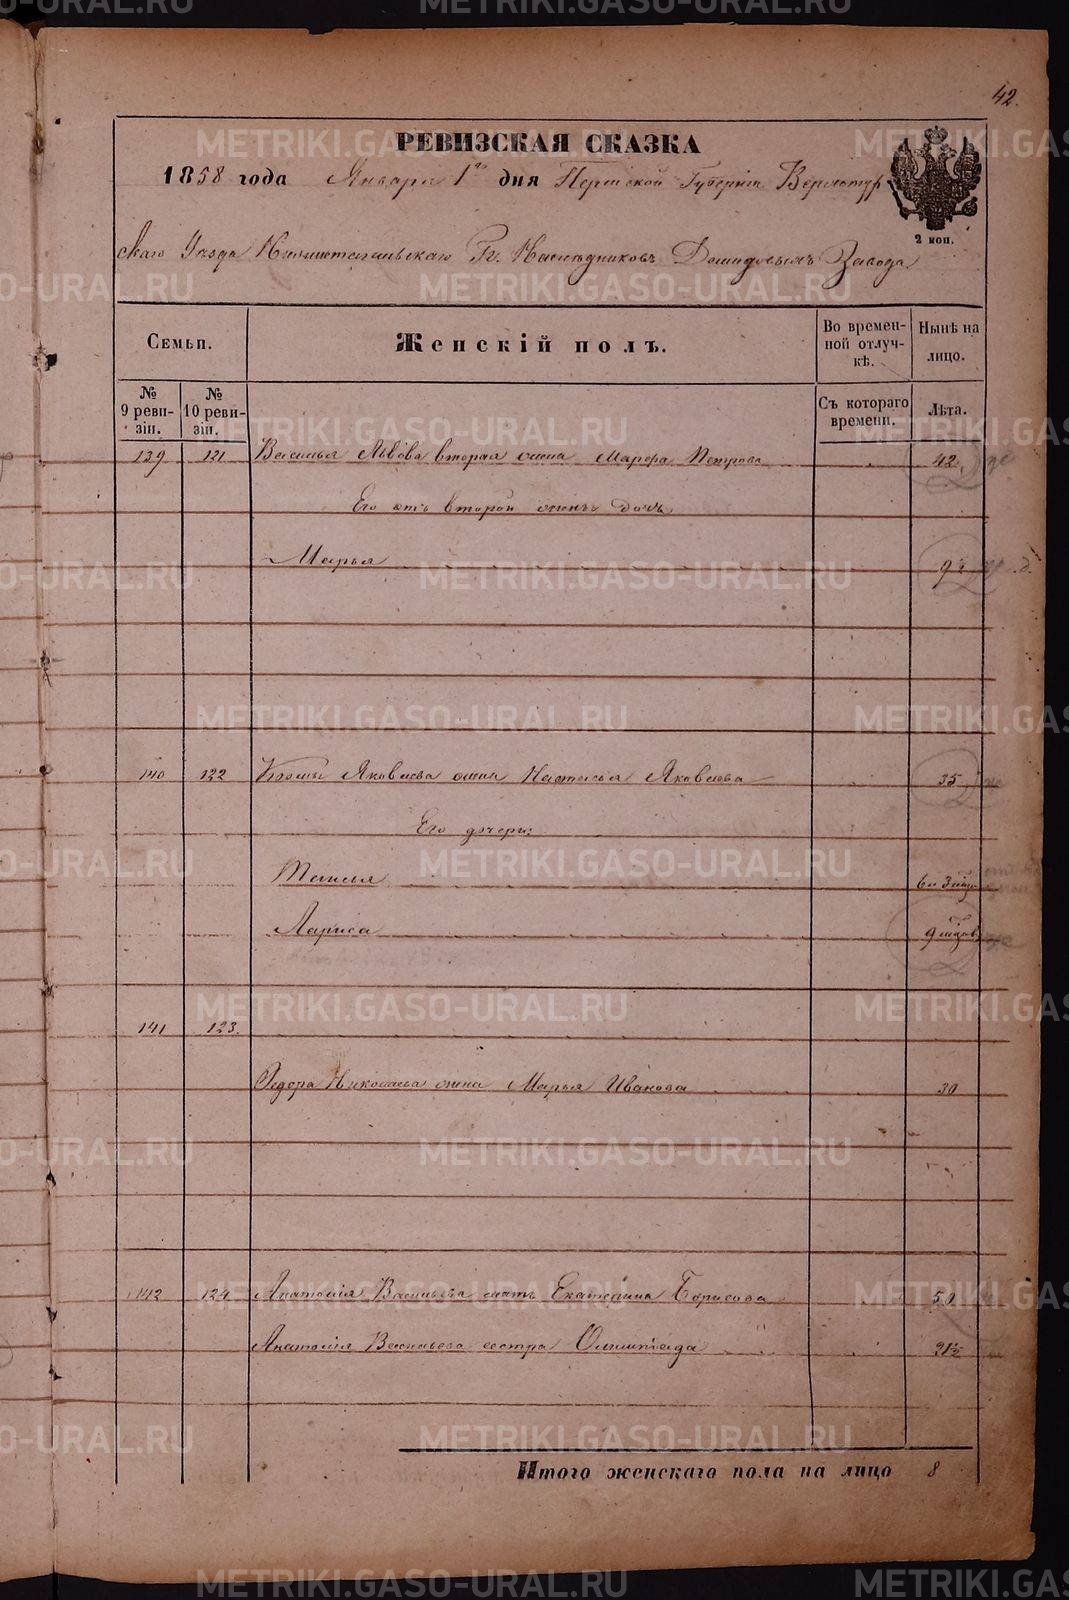 42.
РЕВИЗСКАЯ СКАЗКА
1858 года Января 1го дня Пермской Губерніи Верхотур
2 коп.
скаго Уѣзда Нижнетагильскаго Гг. Наслѣдниковъ Демидовыхъ Завода
Семьи. Женскій полъ. Во времен-ной отлуч-кѣ. Нынѣ на лицо.
№ 9 реви-зіи. № 10 реви-зіи. Съ котораго времени. Лѣта.
139 121 Василья Львова вторая жена Марфа Петрова 42
Его отъ второй жены дочь
Марья 9½
140 122 Яковлева жена Настасья Яковлева 35
Его дочери:
Таисья 6 л 3 мѣс
Лариса 9 мѣсяцов
141 123.
Федора Николаева жена Марья Иванова 30
142 124 Анатолія Васильева мать Екатерина Борисова 50
Анатолія Васильева сестра Олимпіада 21½
Итого женскаго пола на лицо 8
METRIKI.GASO-URAL.RU